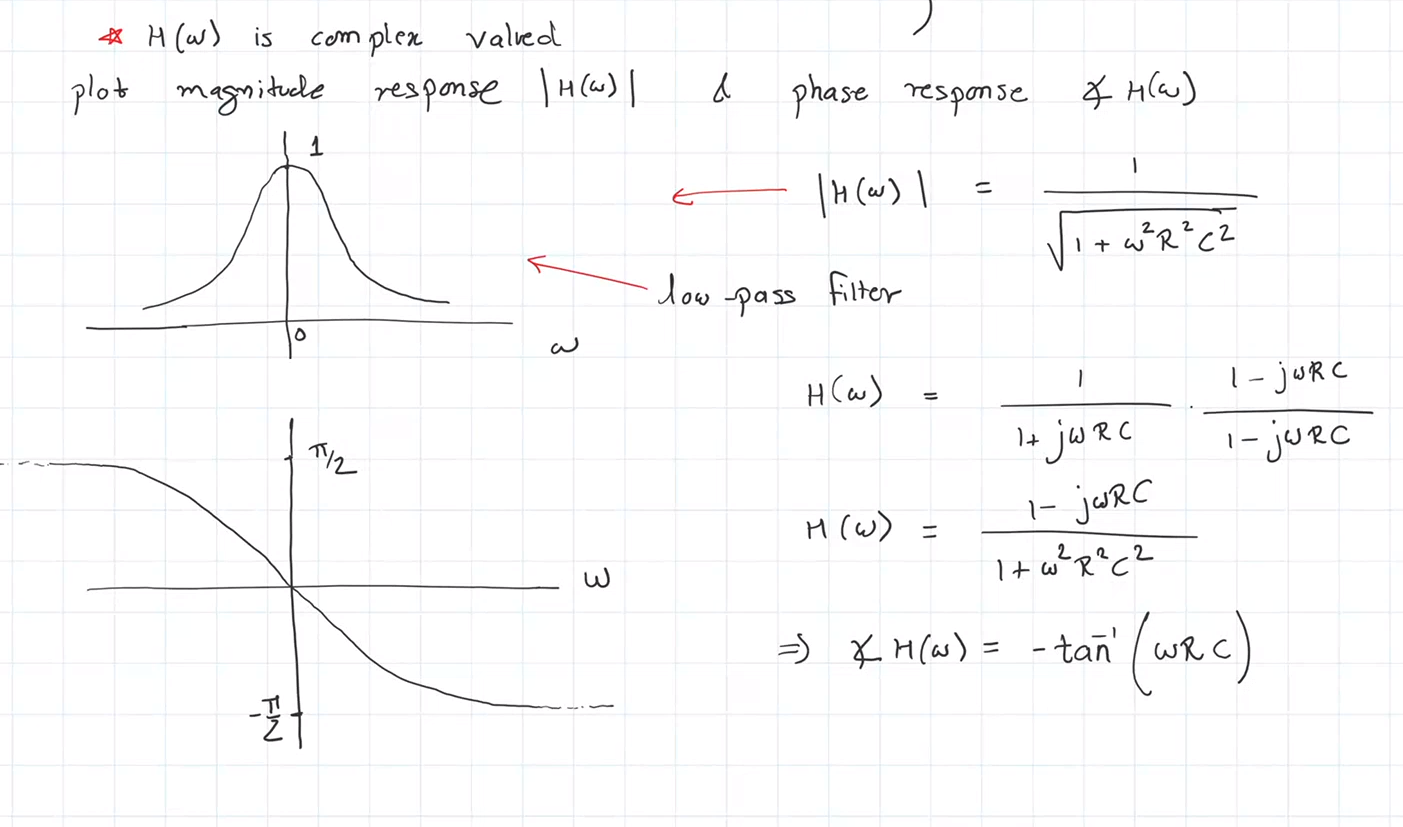 ☆ H(ω) is complex valued
plot magnitude response |H(ω)| & phase response ∡ H(ω)
1
|H(ω)| = 1 / √(1 + ω²R²C²)
low-pass filter
0
ω
H(ω) = 1 / (1 + jωRC) · (1 - jωRC) / (1 - jωRC)
π/2
H(ω) = (1 - jωRC) / (1 + ω²R²C²)
ω
⇒ ∡ H(ω) = -tan⁻¹ (ωRC)
-π/2